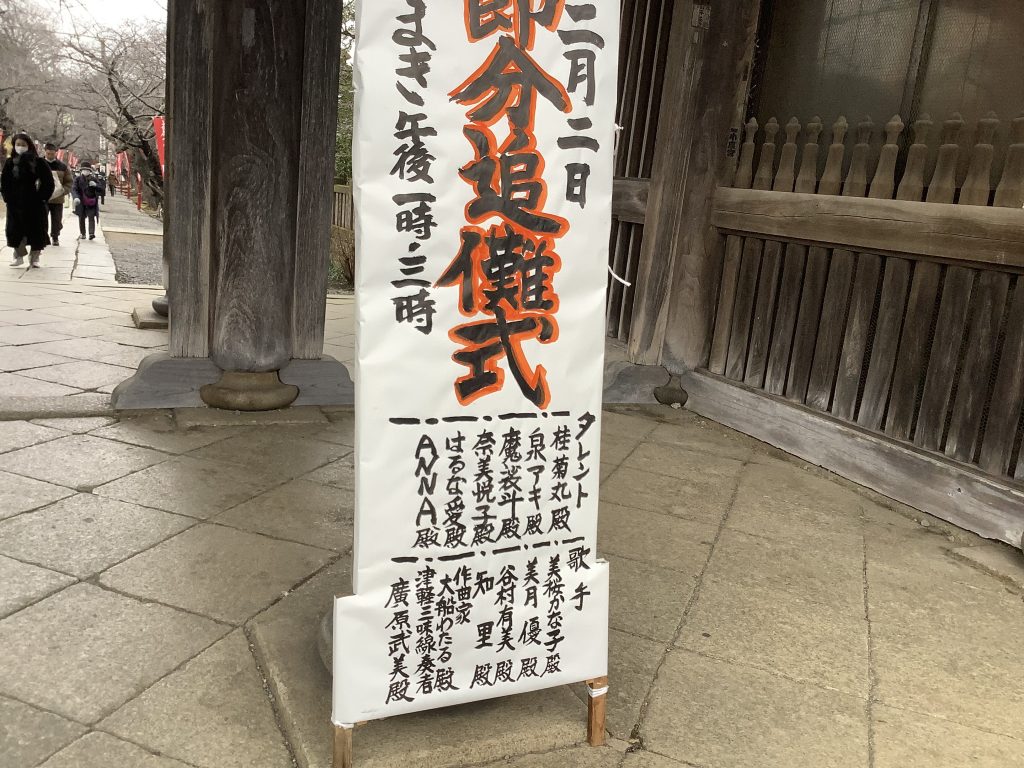 二月二日
節分追儺式
まき 午後一時・三時
タレント
一、桂菊丸殿
一、泉アキ殿
一、魔裟斗殿
一、奈美悦子殿
一、はるな愛殿
一、ANNA殿
歌手
一、美桜かな子殿
一、美月優殿
一、谷村有美殿
一、知里殿
作曲家
一、大船わたる殿
津軽三味線奏者
一、廣原武美殿